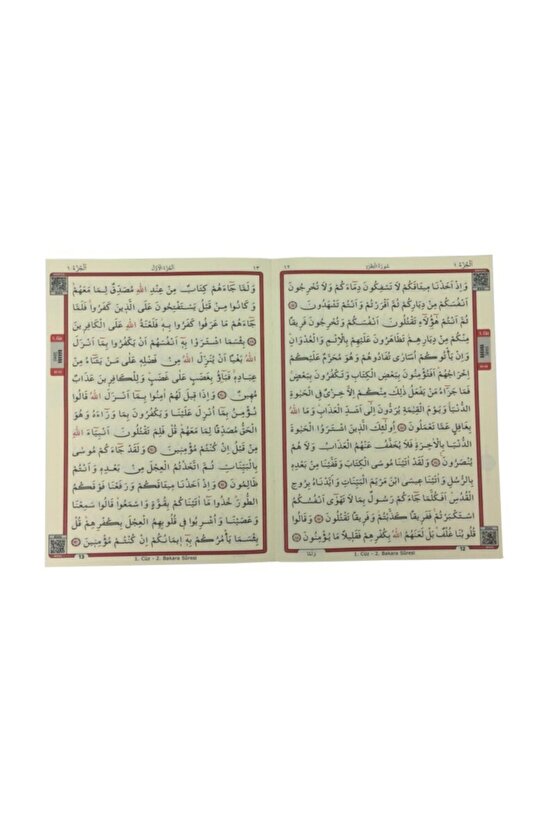 اَلْجُزْءُ ١
سُورَةُ الْبَقَرَةِ
١٢
وَاِذْ اَخَذْنَا مِيثَاقَكُمْ لَا تَسْفِكُونَ دِمَٓاءَكُمْ وَلَا تُخْرِجُونَ
اَنْفُسَكُمْ مِنْ دِيَارِكُمْ ثُمَّ اَقْرَرْتُمْ وَاَنْتُمْ تَشْهَدُونَ
ثُمَّ اَنْتُمْ هٰٓؤُ۬لَٓاءِ تَقْتُلُونَ اَنْفُسَكُمْ وَتُخْرِجُونَ فَرِيقًا
مِنْكُمْ مِنْ دِيَارِهِمْ تَظَاهَرُونَ عَلَيْهِمْ بِالْاِثْمِ وَالْعُدْوَانِ
وَاِنْ يَأْتُوكُمْ اُسَارٰى تُفَادُوهُمْ وَهُوَ مُحَرَّمٌ عَلَيْكُمْ
اِخْرَاجُهُمْ اَفَتُؤْمِنُونَ بِبَعْضِ الْكِتَابِ وَتَكْفُرُونَ بِبَعْضٍ
فَمَا جَزَٓاءُ مَنْ يَفْعَلُ ذٰلِكَ مِنْكُمْ اِلَّا خِزْيٌ فِي الْحَيٰوةِ
الدُّنْيَا وَيَوْمَ الْقِيٰمَةِ يُرَدُّونَ اِلٰٓى اَشَدِّ الْعَذَابِ وَمَا اللّٰهُ
بِغَافِلٍ عَمَّا تَعْمَلُونَ اُو۬لٰٓئِكَ الَّذِينَ اشْتَرَوُا الْحَيٰوةَ
الدُّنْيَا بِالْاٰخِرَةِ فَلَا يُخَفَّفُ عَنْهُمُ الْعَذَابُ وَلَا هُمْ
يُنْصَرُونَ وَلَقَدْ اٰتَيْنَا مُوسَى الْكِتَابَ وَقَفَّيْنَا مِنْ بَعْدِهِ
بِالرُّسُلِ وَاٰتَيْنَا عِيسَى ابْنَ مَرْيَمَ الْبَيِّنَاتِ وَاَيَّدْنَاهُ بِرُوحِ
الْقُدُسِ اَفَكُلَّمَا جَٓاءَكُمْ رَسُولٌ بِمَا لَا تَهْوٰٓى اَنْفُسُكُمُ
اسْتَكْبَرْتُمْ فَفَرِيقًا كَذَّبْتُمْ وَفَرِيقًا تَقْتُلُونَ وَقَالُوا
قُلُوبُنَا غُلْفٌ بَلْ لَعَنَهُمُ اللّٰهُ بِكُفْرِهِمْ فَقَلِيلًا مَا يُؤْمِنُونَ
وَلَمَّا
1. Cüz - 2. Bakara Sûresi
12
اَلْجُزْءُ الْاَوَّلُ
١٣
اَلْجُزْءُ ١
وَلَمَّا جَٓاءَهُمْ كِتَابٌ مِنْ عِنْدِ اللّٰهِ مُصَدِّقٌ لِمَا مَعَهُمْ
وَكَانُوا مِنْ قَبْلُ يَسْتَفْتِحُونَ عَلَى الَّذِينَ كَفَرُوا فَلَمَّا
جَٓاءَهُمْ مَا عَرَفُوا كَفَرُوا بِهِ فَلَعْنَةُ اللّٰهِ عَلَى الْكَافِرِينَ
بِئْسَمَا اشْتَرَوْا بِهِ اَنْفُسَهُمْ اَنْ يَكْفُرُوا بِمَٓا اَنْزَلَ
اللّٰهُ بَغْيًا اَنْ يُنَزِّلَ اللّٰهُ مِنْ فَضْلِهِ عَلٰى مَنْ يَشَٓاءُ مِنْ
عِبَادِهِ فَبَٓاؤُ۫ بِغَضَبٍ عَلٰى غَضَبٍ وَلِلْكَافِرِينَ عَذَابٌ
مُهِينٌ وَاِذَا قِيلَ لَهُمْ اٰمِنُوا بِمَٓا اَنْزَلَ اللّٰهُ قَالُوا
نُؤْمِنُ بِمَٓا اُنْزِلَ عَلَيْنَا وَيَكْفُرُونَ بِمَا وَرَٓاءَهُ وَهُوَ
الْحَقُّ مُصَدِّقًا لِمَا مَعَهُمْ قُلْ فَلِمَ تَقْتُلُونَ اَنْبِيَٓاءَ اللّٰهِ
مِنْ قَبْلُ اِنْ كُنْتُمْ مُؤْمِنِينَ وَلَقَدْ جَٓاءَكُمْ مُوسٰى
بِالْبَيِّنَاتِ ثُمَّ اتَّخَذْتُمُ الْعِجْلَ مِنْ بَعْدِهِ وَاَنْتُمْ
ظَالِمُونَ وَاِذْ اَخَذْنَا مِيثَاقَكُمْ وَرَفَعْنَا فَوْقَكُمُ
الطُّورَ خُذُوا مَٓا اٰتَيْنَاكُمْ بِقُوَّةٍ وَاسْمَعُوا قَالُوا سَمِعْنَا
وَعَصَيْنَا وَاُشْرِبُوا فِي قُلُوبِهِمُ الْعِجْلَ بِكُفْرِهِمْ قُلْ
بِئْسَمَا يَأْمُرُكُمْ بِهِ اِيمَانُكُمْ اِنْ كُنْتُمْ مُؤْمِنِينَ
13
1. Cüz - 2. Bakara Sûresi